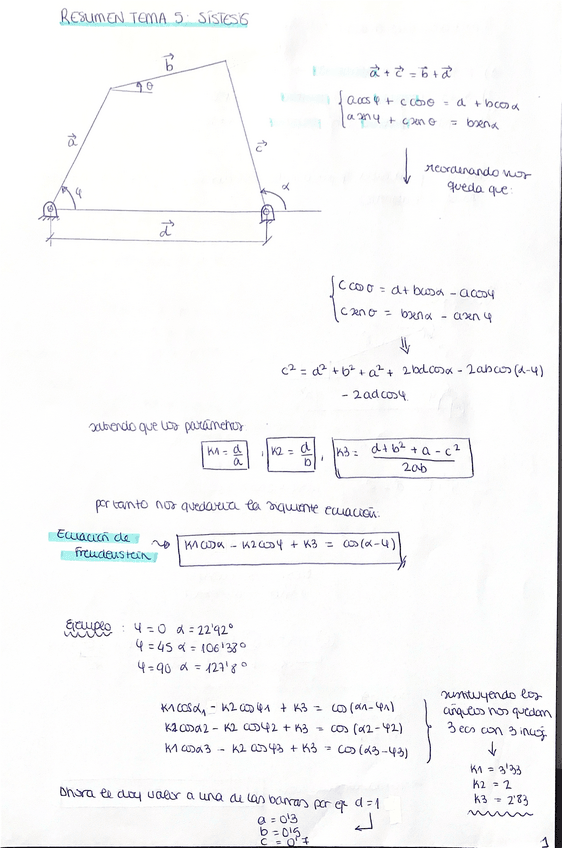 RESUMEN TEMA 5: SÍSTESIS
b
θ
a
c
φ
α
d
a + c = b + d
acosφ + ccosθ = d + bcosα
asenφ + csenθ = bsenα
reordenando nos
queda que:
ccosθ = d + bcosα - acosφ
csenθ = bsenα - asenφ
⇓
c² = d² + b² + a² + 2bdcosα - 2abcos(α-φ)
- 2adcosφ
sabiendo que los parámetros
K1 = d/a , K2 = d/b , K3 = (d + b² + a - c²)/2ab
por tanto nos quedaría la siguiente ecuación:
Ecuación de
Freudenstein → K1cosα - K2cosφ + K3 = cos(α-φ)
Ejemplo: φ=0 α=22'92°
φ=45 α=106'38°
φ=90 α=127'8°
K1cosα1 - K2cosφ1 + K3 = cos(α1-φ1)
K2cosα2 - K2cosφ2 + K3 = cos(α2-φ2)
K1cosα3 - K2cosφ3 + K3 = cos(α3-φ3)
sustituyendo los
ángulos nos quedan
3 ecs con 3 incóg
K1 = 3'33
K2 = 2
K3 = 2'83
Ahora le doy valor a una de las barras por ej d=1
a = 0'3
b = 0'5
c = 0'7
1